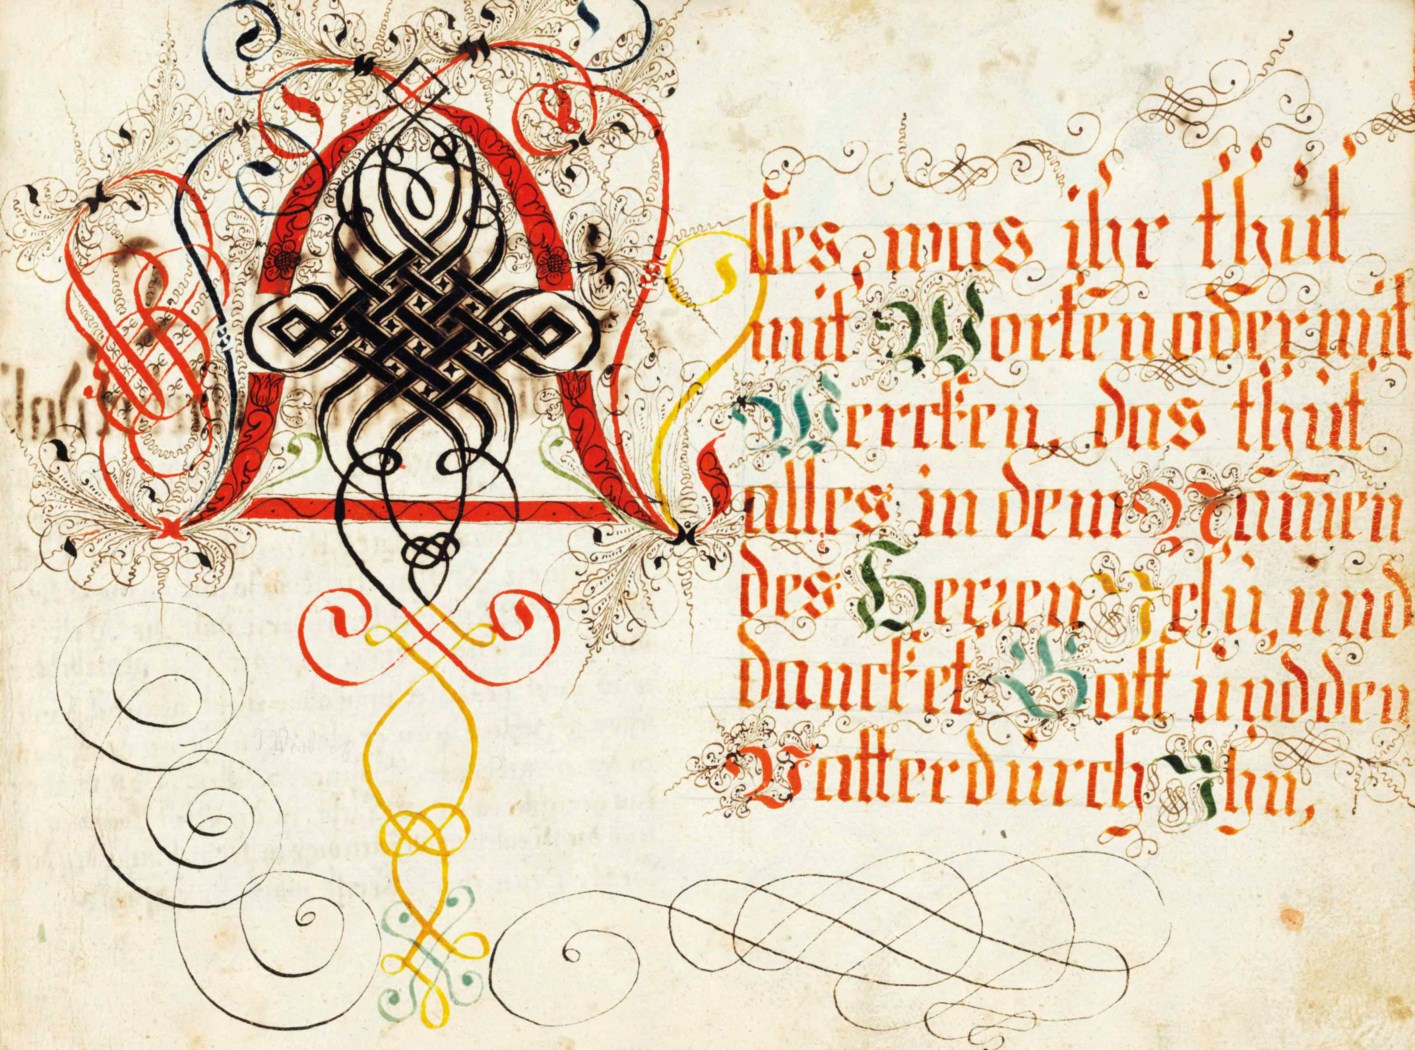 Alles was ihr thut
mit Worten oder mit
Wercken, das thut
alles in dem Nam̄en
des Herren Jesu, und
dancket Gott und den
Vatter durch Ihn,